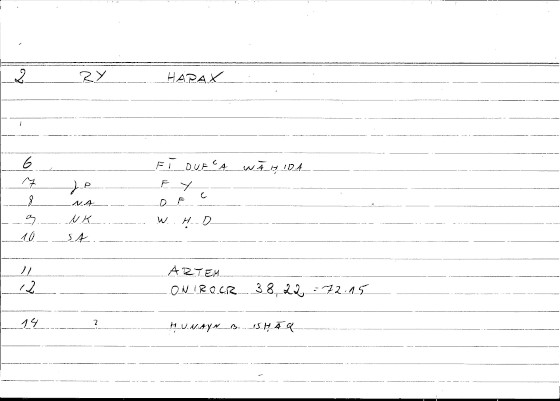 2 RY HAPAX
6 FĪ DUFᶜA WĀḤIDA
7 JP F Y
8 NA D F ᶜ
9 NK W Ḥ D
10 SA
11 ARTEM
12 ONIROCR 38,22 = 72.15
14 ? ḤUNAYN B ISḤĀQ